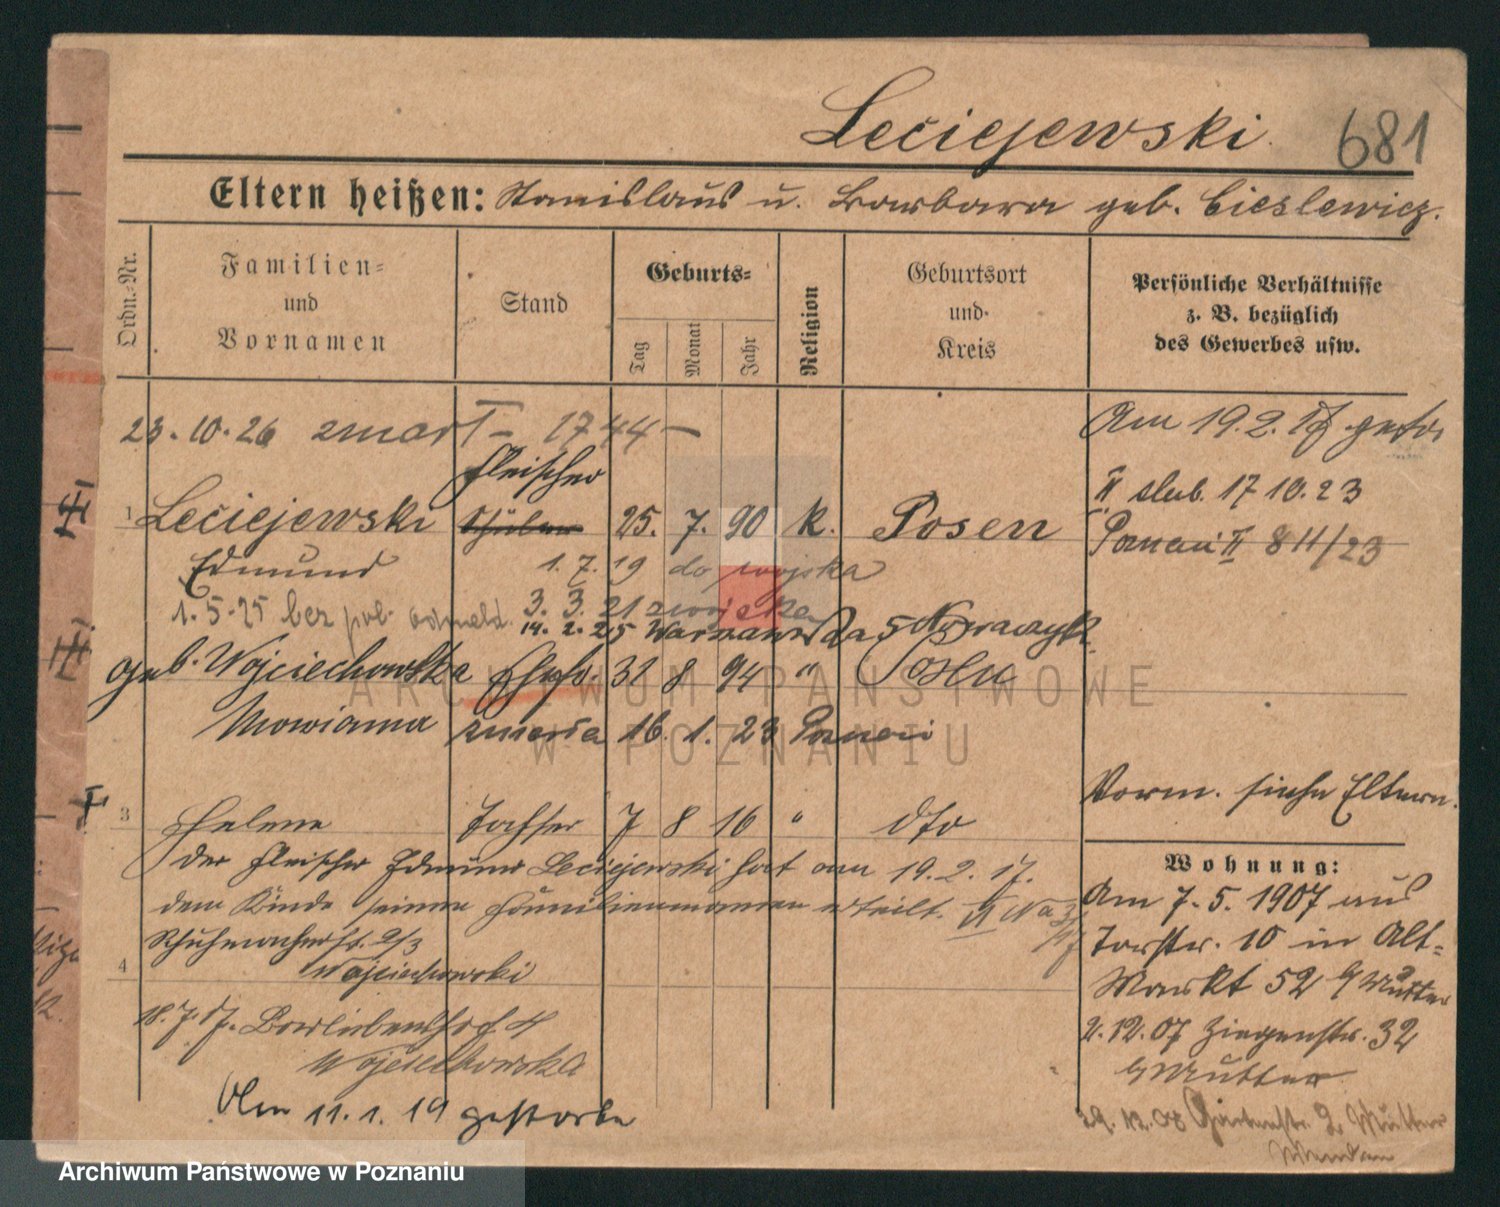 Leciejewski 681
Eltern heißen: Stanislaus u. Barbara geb. Cieslewicz.
Ordn.-Nr.
Familien=
und
Vornamen
Stand
Geburts=
Tag
Monat
Jahr
Religion
Geburtsort
und
Kreis
Persönliche Verhältnisse
z. B. bezüglich
des Gewerbes usw.
23.10.26 zmarł 1744
Am 19.2.17
Fleischer
II slub. 17 10.23
1 Leciejewski Schüler 25. 7. 90 k. Posen
Poznań II 811/23
Edmund 1.7.19 do wojska
3. 3. 21 z wojska
1.5.25 bez pol. odmeld.
14. 2. 25 Warszawska 5 Nowaczyk
geb. Wojciechowska Ehefr. 31 8 94 " Posen
Marianna zmarła 16. 1. 23 Poznań
Vorm. siehe Eltern.
3 Helene Tochter 7 8 16 " dto
Wohnung:
Der Fleischer Edmund Leciejewski hat am 19.2.17.
dem Kinde seinen Familiennamen erteilt.
Am 7.5.1907 aus
Torstr. 10 in Alt=
Markt 52 b Mutter
2.12.07 Ziegenstr. 32
b Mutter
29.12.08 Gartenstr. 2 Mutter
Schuhmacherstr. 2/3
Wojciechowski
4
18.7.17.
Wojciechowska
Am 11.1.19 gestorben
ARCHIWUM PAŃSTWOWE
W POZNANIU
Archiwum Państwowe w Poznaniu